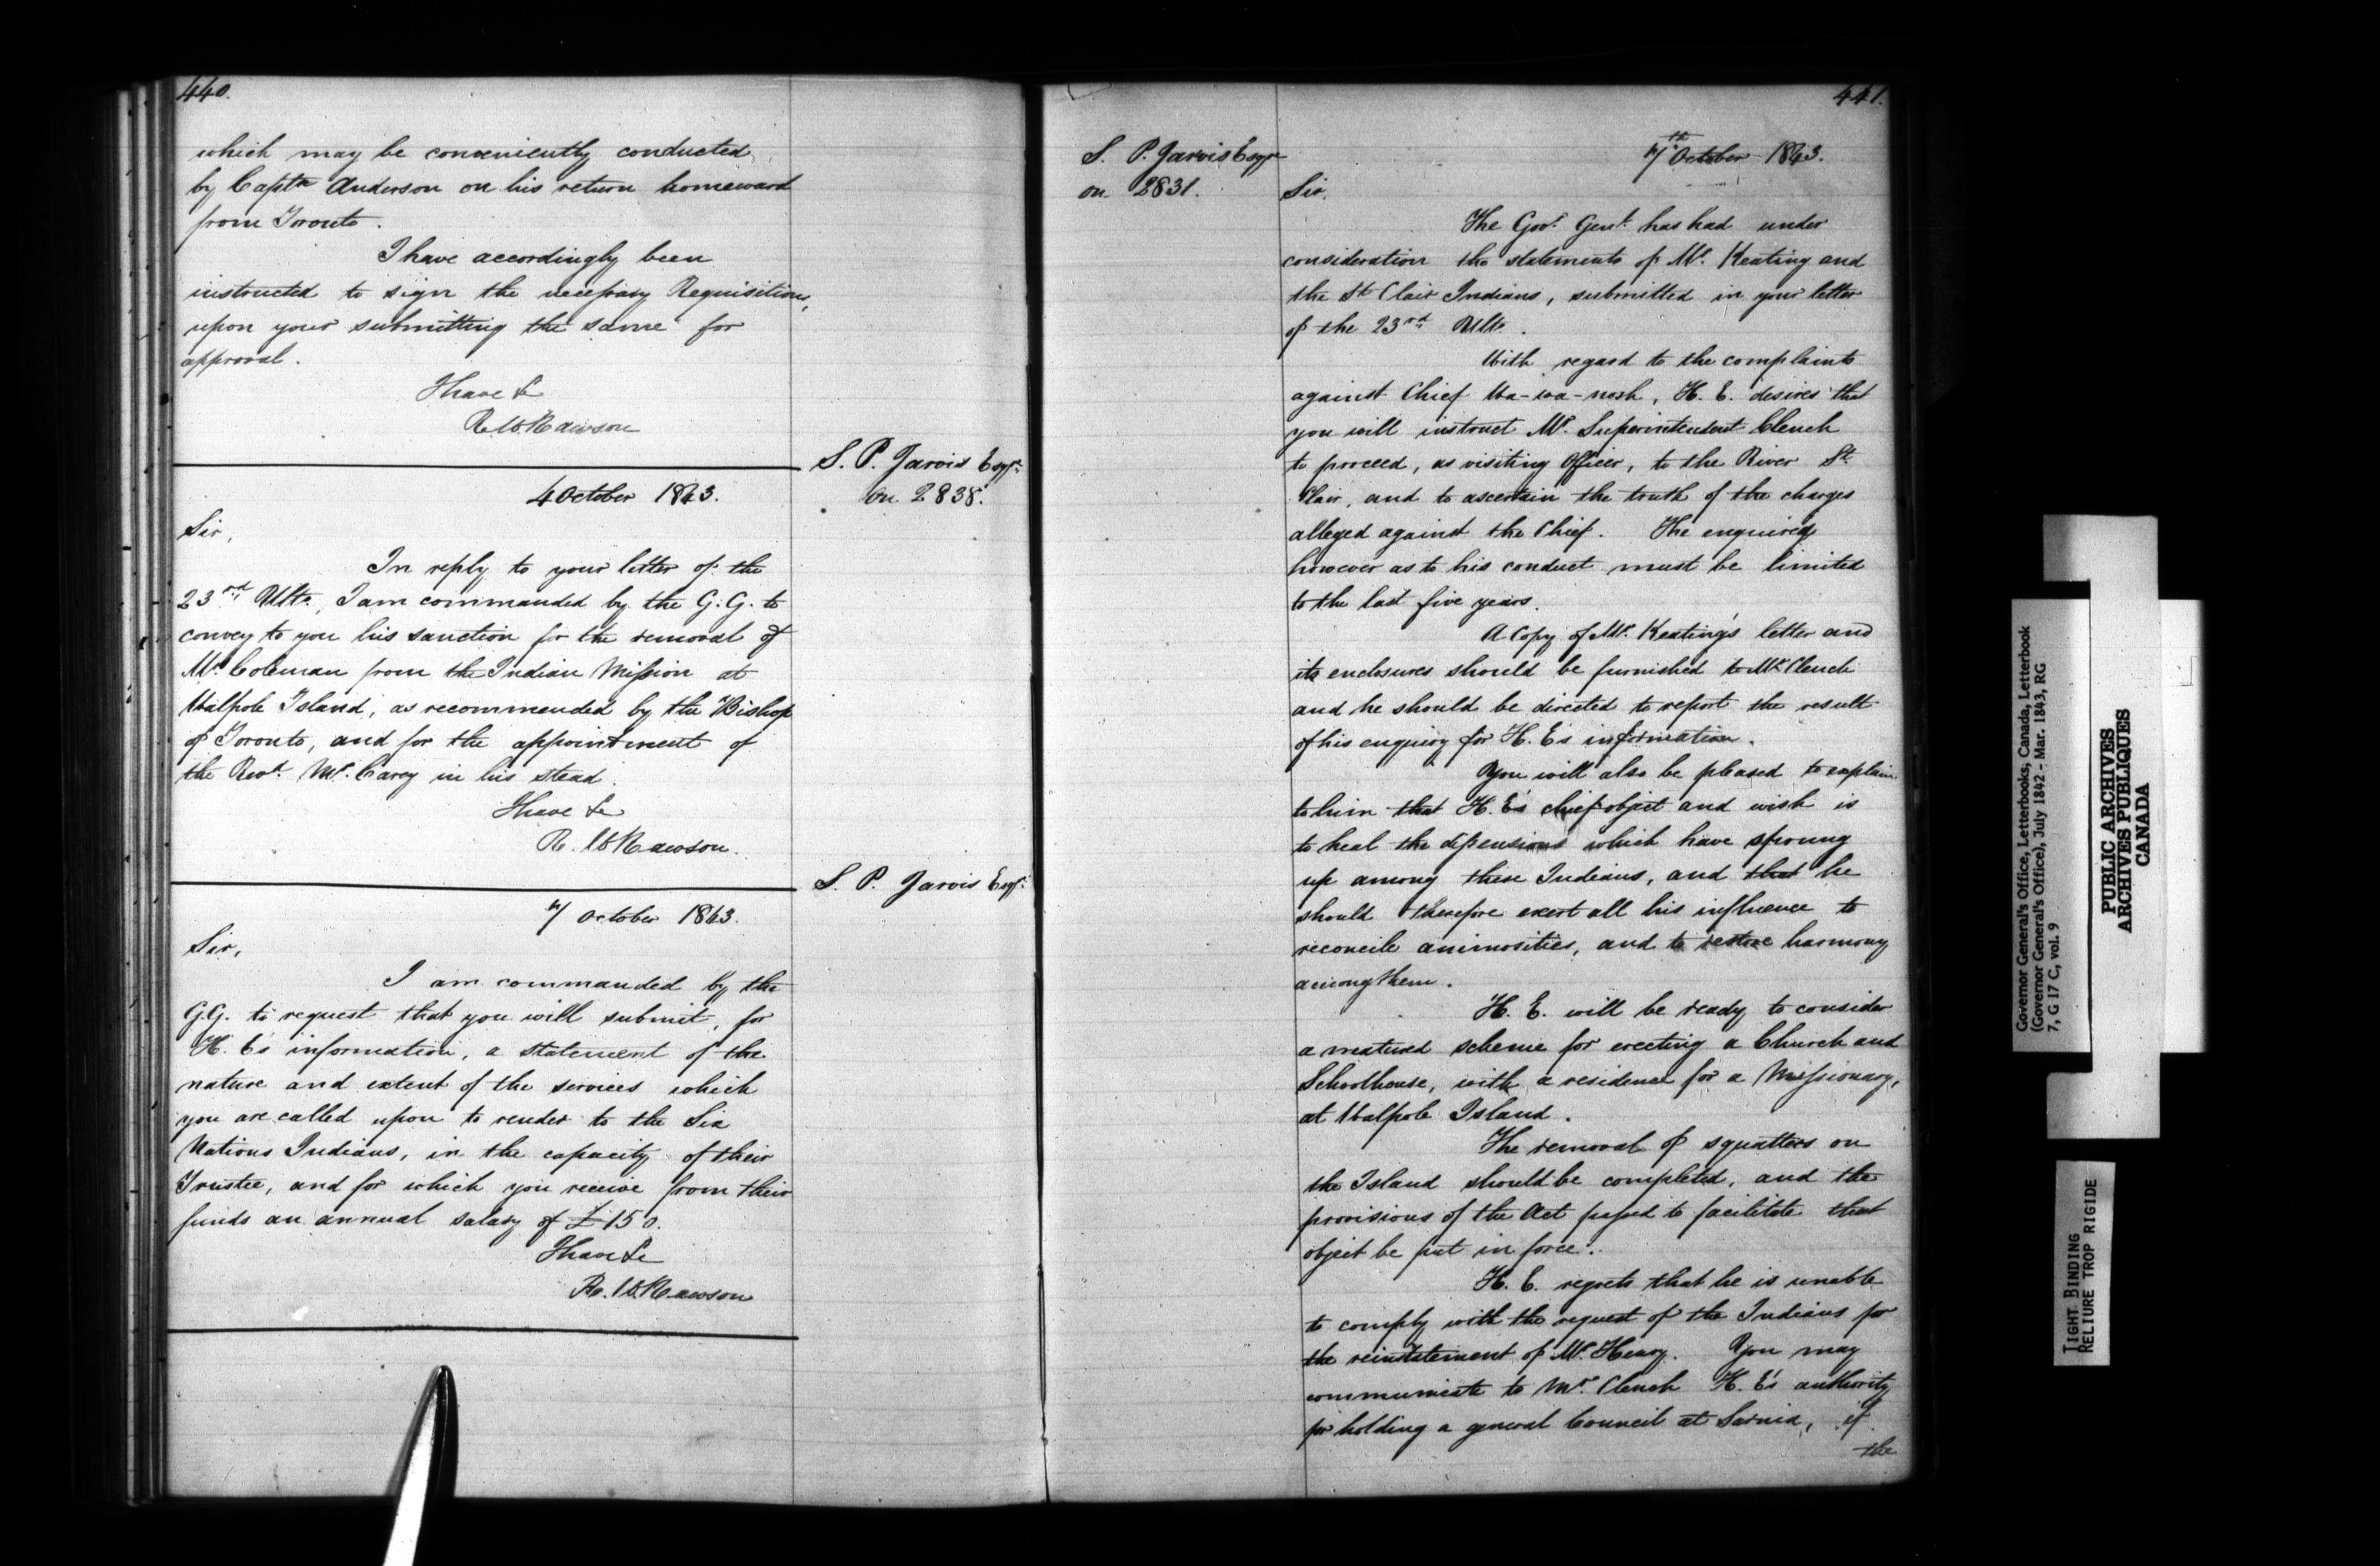 440.
which may be conveniently conducted
by Captn Anderson on his return homeward
from Toronto.
I have accordingly been
instructed to sign the necessary Requisitions,
upon your submitting the same for
approval.
I have &c
R. W. Rawson
S. P. Jarvis Esqr.
on 2838.
4 October 1843.
Sir,
In reply to your letter of the
23rd Ulto, I am commanded by the G.G. to
convey to you his sanction for the removal of
Mr. Coleman from the Indian Mission at
Walpole Island, as recommended by the Bishop
of Toronto, and for the appointment of
the Revd. Mr. Carey in his stead.
I have &c
R. W. Rawson.
S. P. Jarvis Esqr.
October 1843.
Sir,
I am commanded by the
G.G. to request that you will submit, for
H. E's information, a statement of the
nature and extent of the services which
you are called upon to render to the Six
Nations Indians, in the capacity of their
Trustee, and for which you receive from their
funds an annual salary of £150.
I have &c
R. W. Rawson
441.
S. P. Jarvis Esqr
on 2831.
7th October 1843.
Sir.
The Govr. Genl. has had under
consideration the statements of Mr. Keating and
the St Clair Indians, submitted in your letter
of the 23rd Ulto.
With regard to the complaints
against Chief Wa-wa-nosh, H. E. desires that
you will instruct Mr. Superintendent Clench
to proceed, as visiting Officer, to the River St.
Clair, and to ascertain the truth of the charges
alleged against the Chief. The enquiry
however as to his conduct must be limited
to the last five years.
A Copy of Mr. Keating's letter and
its enclosures should be furnished to Mr. Clench
and he should be directed to report the result
of his enquiry for H. E's information.
You will also be pleased to explain
to him that H. E's chief object and wish is
to heal the dissensions which have sprung
up among these Indians, and that he
should therefore exert all his influence to
reconcile animosities, and to restore harmony
among them.
H. E. will be ready to consider
a matured scheme for erecting a Church and
Schoolhouse, with a residence for a Missionary,
at Walpole Island.
The removal of squatters on
the Island should be completed, and the
provisions of the Act passed to facilitate that
object be put in force.
H. E. regrets that he is unable
to comply with the request of the Indians for
the reinstatement of Mr. Henry. You may
communicate to Mr. Clench H. E's authority
for holding a general Council at Sarnia, if
the
Governor General's Office, Letterbooks, Canada, Letterbook
(Governor General's Office), July 1842 - Mar. 1843, RG
7, G 17 C, vol. 9
PUBLIC ARCHIVES
ARCHIVES PUBLIQUES
CANADA
TIGHT BINDING
RELIURE TROP RIGIDE